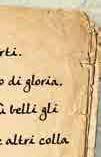 rti.
o di gloria.
ù belli gli
e altri colla